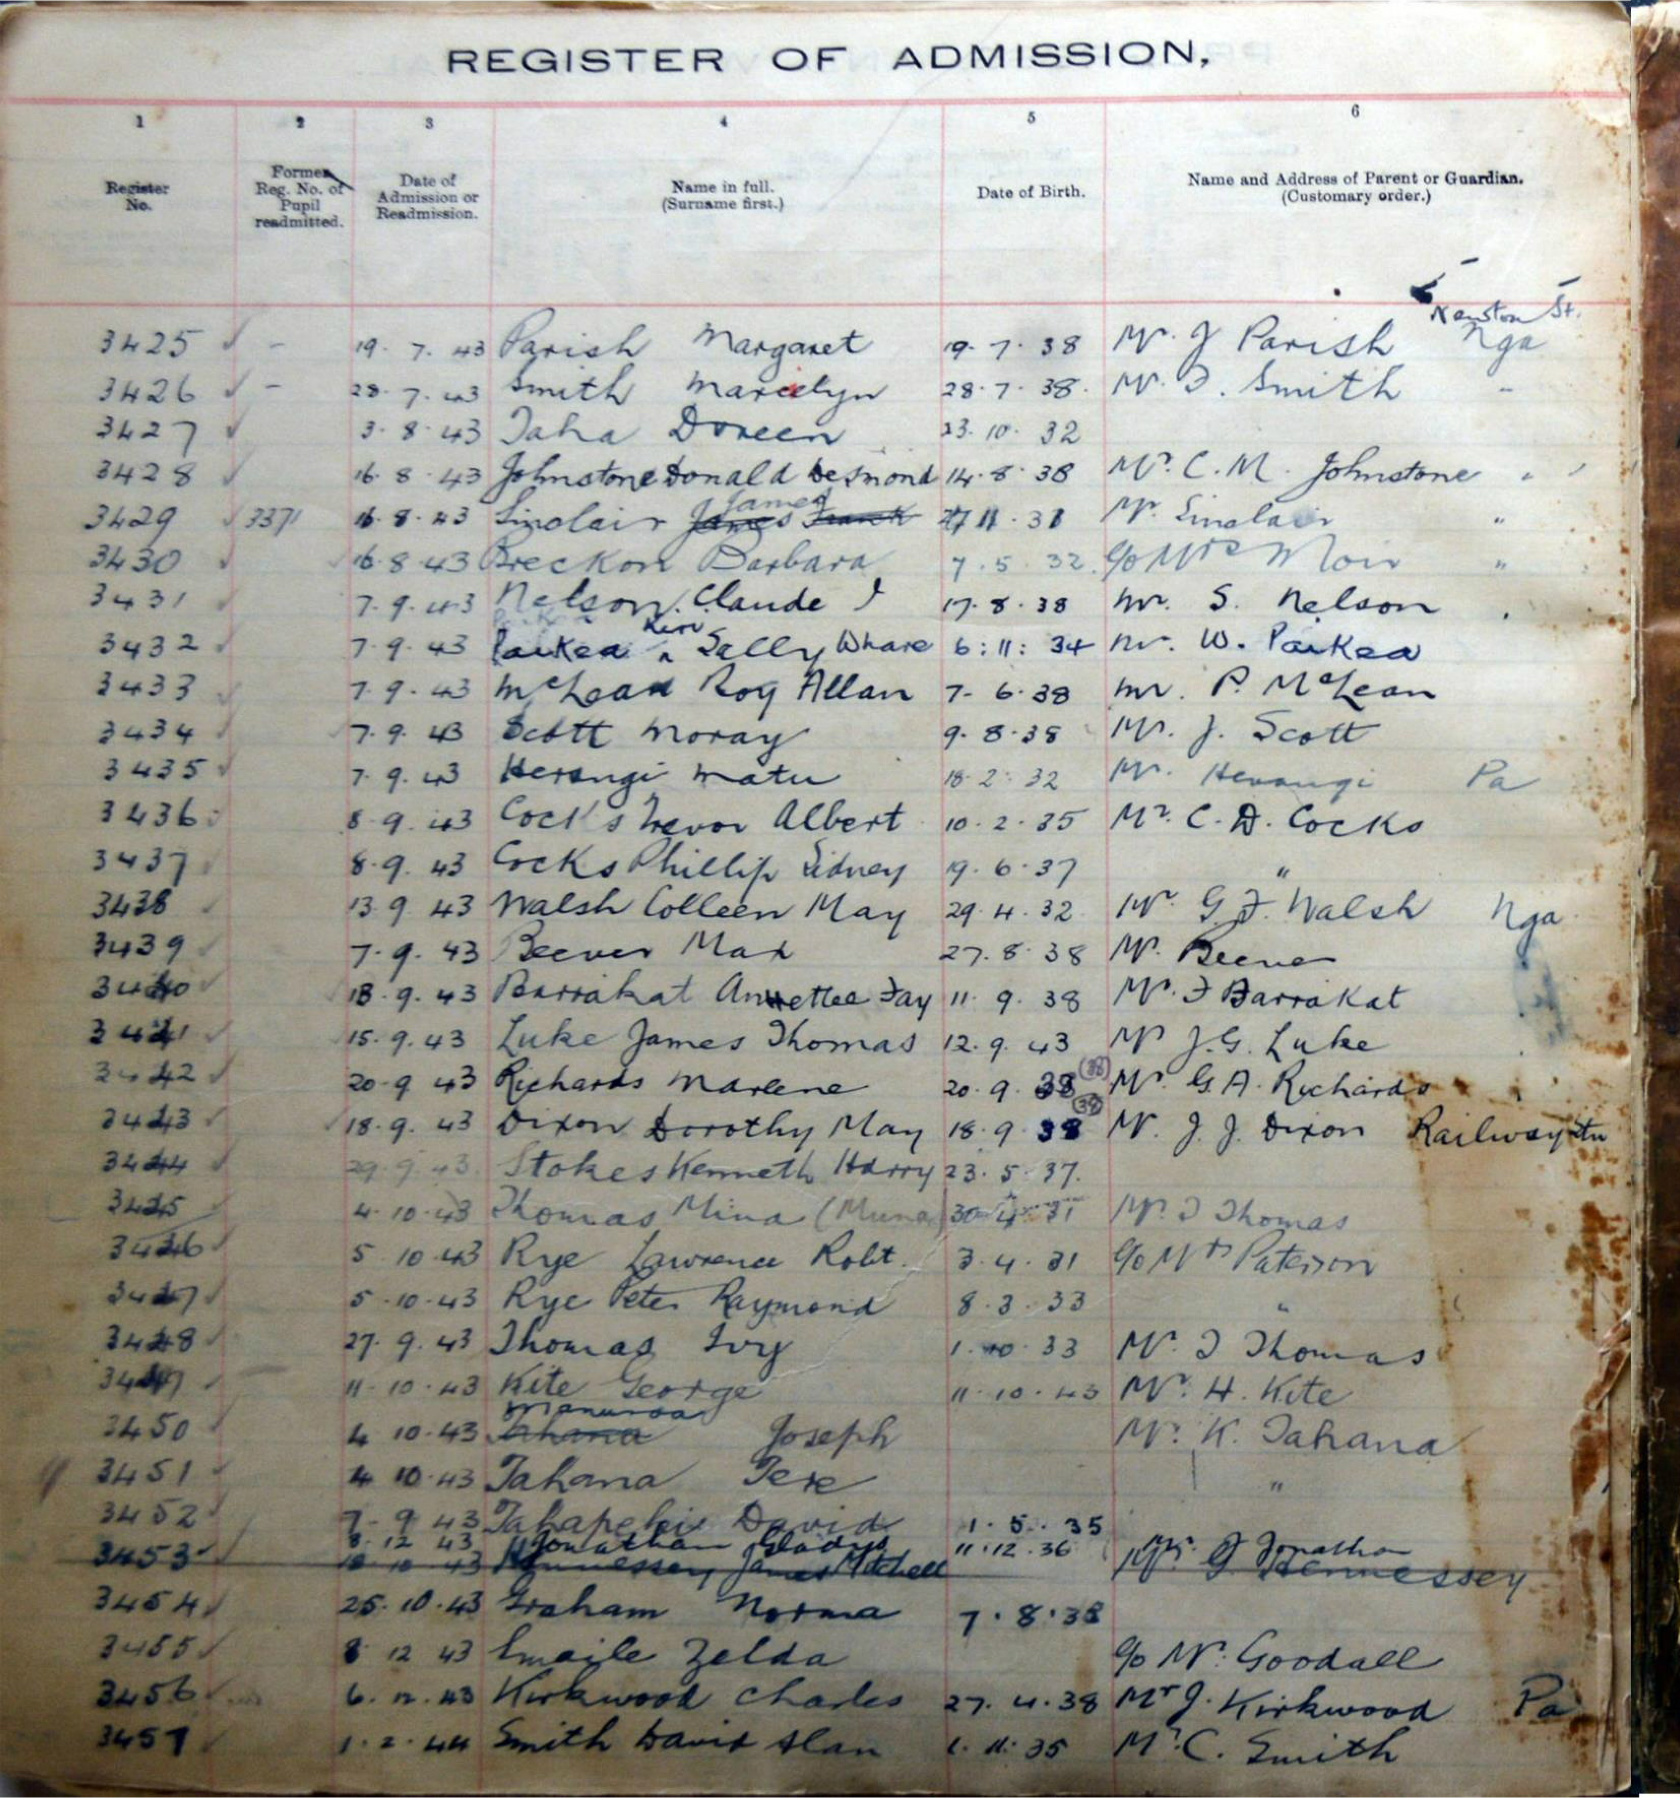 REGISTER OF ADMISSION.
1 2 3 4 5 6
Register No. Former Reg. No. of Pupil readmitted. Date of Admission or Readmission. Name in full. (Surname first.) Date of Birth. Name and Address of Parent or Guardian. (Customary order.)
St.
3425 - 19. 7. 43 Parish Margaret 19. 7. 38 Mr. J Parish Nga
3426 - 28. 7. 43 Smith 28. 7. 38. Mr. F. Smith "
3427 3. 8. 43 Taha Doreen 23. 10. 32
3428 16. 8. 43 Johnstone Donald Desmond 14. 8. 38 Mr. C. M. Johnstone "
James
3429 3371 16. 8. 43 Sinclair James Frank 11. 31 Mr. Sinclair "
3430 16. 8. 43 Breckon Barbara 7. 5. 32. c/o Mrs Moir "
3431 7. 9. 43 Nelson. Claude J 17. 8. 38 Mr. S. Nelson
3432 7. 9. 43 Paikea Sally Whare 6: 11: 34 Mr. W. Paikea
3433 7. 9. 43 McLean Roy Allan 7. 6. 38 Mr. P. McLean
3434 7. 9. 43 Scott Moray 9. 8. 38 Mr. J. Scott
3435 7. 9. 43 Herangi Matu 18. 2. 32 Mr. Herangi Pa
3436 8. 9. 43 Cocks Trevor Albert 10. 2. 35 Mr. C. D. Cocks
3437 8. 9. 43 Cocks Phillip Sidney 19. 6. 37 "
3438 13. 9 43 Walsh Colleen May 29. 4. 32 Mr G. F. Walsh Nga
3439 7. 9. 43 Beever Max 27. 8. 38 Mr. Beever
3440 13. 9. 43 Barrakat Annettee Fay 11. 9. 38 Mr. F Barrakat
3441 15. 9. 43 Luke James Thomas 12. 9. 43 Mr J. G. Luke
3442 20. 9 43 Richards Marlene 20. 9. 38 (38) Mr. G. A. Richards
3443 18. 9. 43 Dixon Dorothy May 18. 9 38 (38) Mr. J. J. Dixon Railway Stn
3444 29. 9. 43. Stokes Kenneth Harry 23. 5. 37.
3445 4. 10. 43 Thomas Mina (Muna) 30. 4. 31 Mr. T Thomas
3446 5. 10. 43 Rye Lawrence Robt. 3. 4. 31 c/o Mrs Paterson
3447 5. 10. 43 Rye Peter Raymond 8. 3. 33 "
3448 27. 9. 43 Thomas Ivy 1. 10. 33 Mr. T Thomas
3449 11. 10. 43 Kite George 11. 10. 43 Mr. H. Kite
Manuroa
3450 4 10. 43 Tahana Joseph Mr. K. Tahana
3451 4 10. 43 Tahana Tere "
3452 7. 9 43 Tahapehi David 1. 5. 35
8. 12 43 Jonathan Gladys 11. 12. 36 Mr. J Jonathan
3453 18 10 43 Hennessey James Mitchell Hennessey
3454 25. 10. 43 Graham Norma 7. 8. 38
3455 8 12 43 Smaile Zelda c/o Mr. Goodall
3456 6. 12. 43 Kirkwood Charles 27. 4. 38 Mr J. Kirkwood Pa
3457 1. 2. 44 Smith David Alan 1. 11. 35 Mr C. Smith